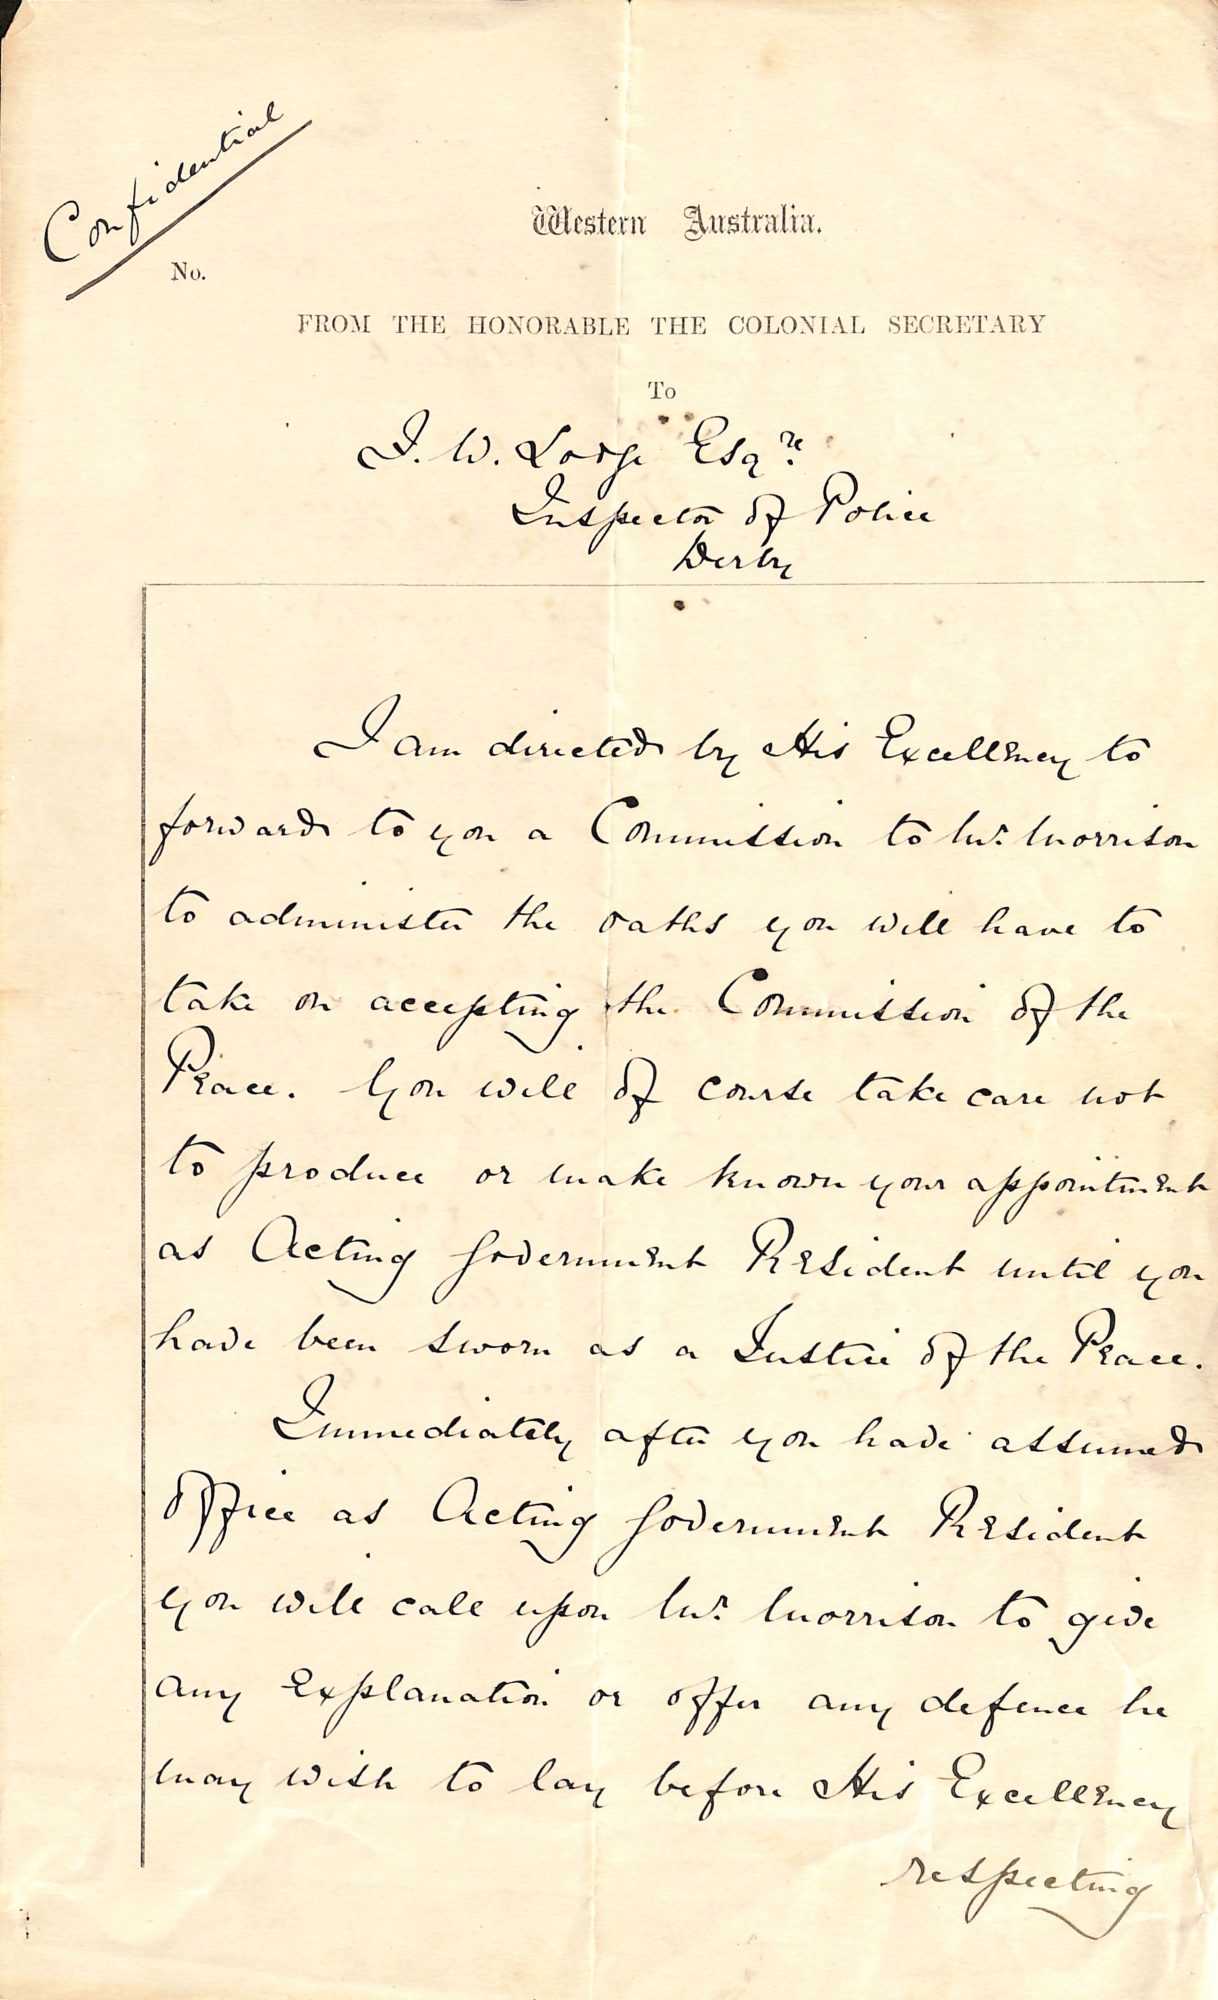 Confidential
Western Australia.
No.
FROM THE HONORABLE THE COLONIAL SECRETARY
To
I. W. Lodge Esqre.
Inspector of Police
Derby
I am directed by His Excellency to
forward to you a Commission to Mr. Morrison
to administer the oaths you will have to
take on accepting the Commission of the
Peace. You will of course take care not
to produce or make known your appointment
as Acting Government Resident until you
have been sworn as a Justice of the Peace.
Immediately after you have assumed
office as Acting Government Resident
you will call upon Mr. Morrison to give
any explanation or offer any defence he
may wish to lay before His Excellency
respecting